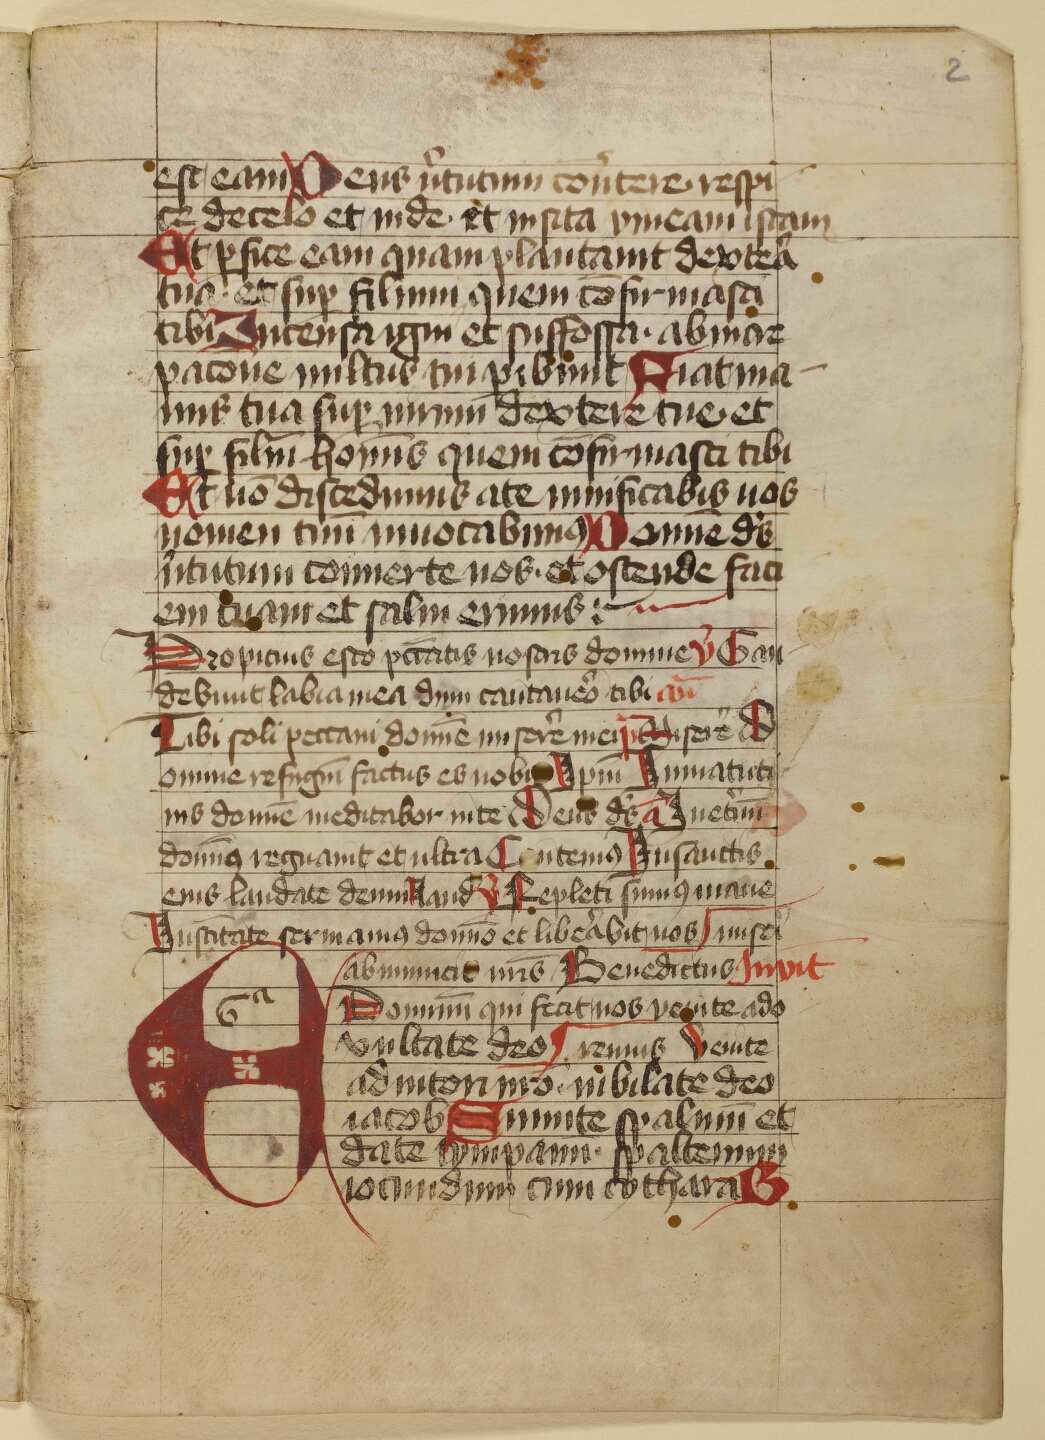 2
est eam Deus v̾tutum cōv̾tere respi
ce de celo et vide et visita vineam istam
Et ꝑfice eam quam plantauit dextera
tua et suꝑ filium quem cōfirmasti
tibi Incensa igni et suffossa ab incre
pacōne vultus tui ꝑibunt Fiat ma
nus tua suꝑ virum dextere tue et
suꝑ filiū hominis quem cōfirmasti tibi
Et nō discedimus a te viuificabis nos
nomen tuū inuocabimꝰ Domine ds̄
v̾tutum conuerte nos et ostende faci
em tuam et salui erimus
Propicius esto pctātis nostris domine V̾ Gau
debunt labia mea dum cantauero tibi
Tibi soli peccaui domīe miserere mei Miserē D
omine refugiū factus es nobis In matuti
nis domīe meditabor in te Deus ds̄
domīꝰ regnauit et ultra Cantemꝰ In sanctis
eius laudate deum Laud̄ V̾ Repleti sumꝰ mane
In sctītate seruiamꝰ domīo et liberabit nos
ab inimicis nrīs Benedictus Inuit
Dominū qui fecit nos venite ado
E
Ga
xultate deo Venite
adiutori nrō iubilate deo
iacob Sumite psalmū et
date tympanū psalterium
iocundum cum cythara B